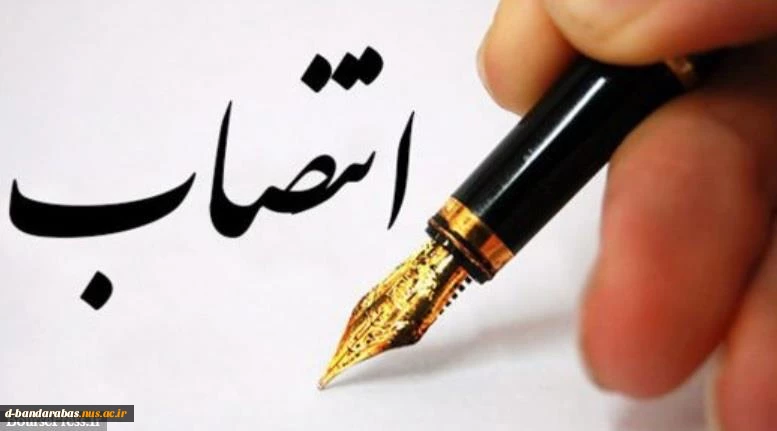 انتصاب
d-bandarabas.nus.ac.ir
BourscPress.ir